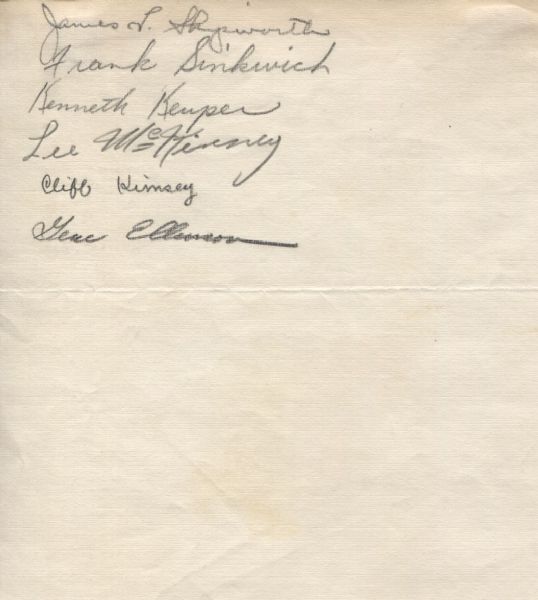 James L. Skipworth
Frank Sinkwich
Kenneth Keuper
Lee McKinney
Cliff Kimsey
Gene Ellenson